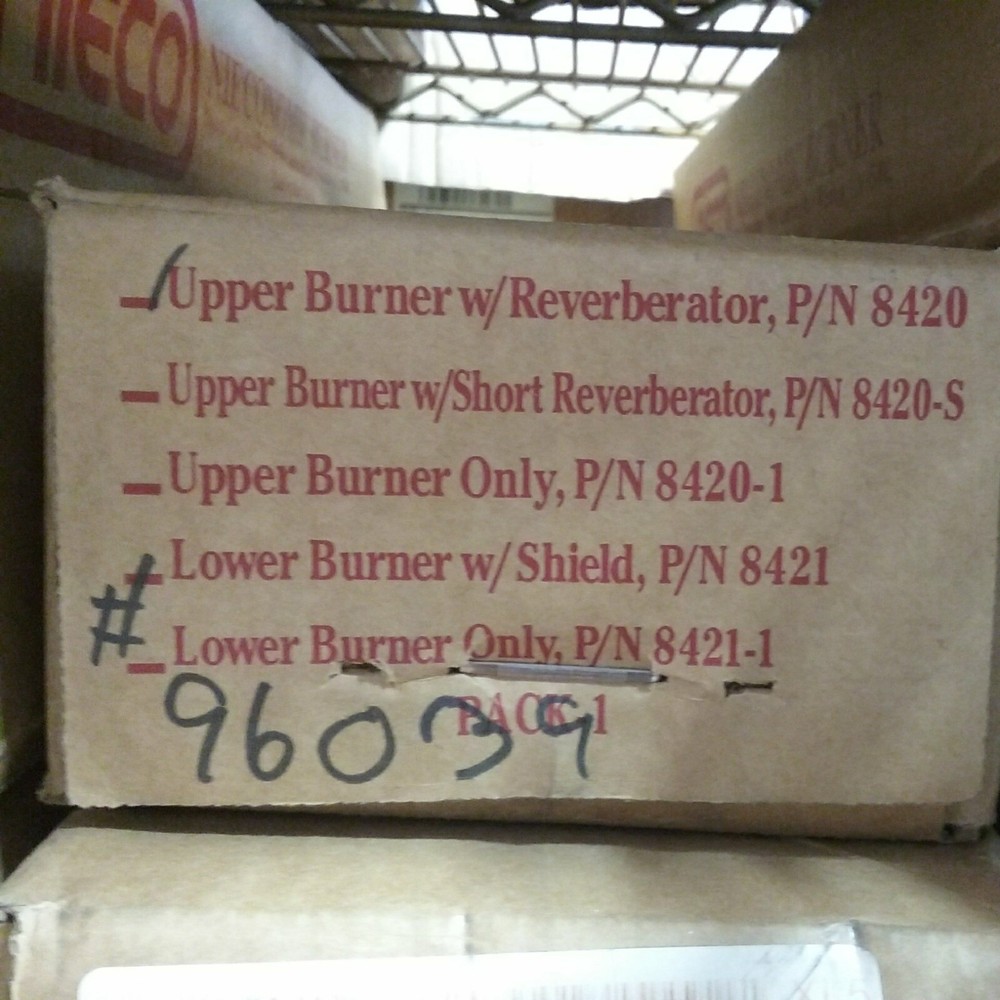 NIECO
Upper Burner w/Reverberator, P/N 8420
Upper Burner w/Short Reverberator, P/N 8420-S
Upper Burner Only, P/N 8420-1
Lower Burner w/Shield, P/N 8421
Lower Burner Only, P/N 8421-1
PACK 1
#
96039